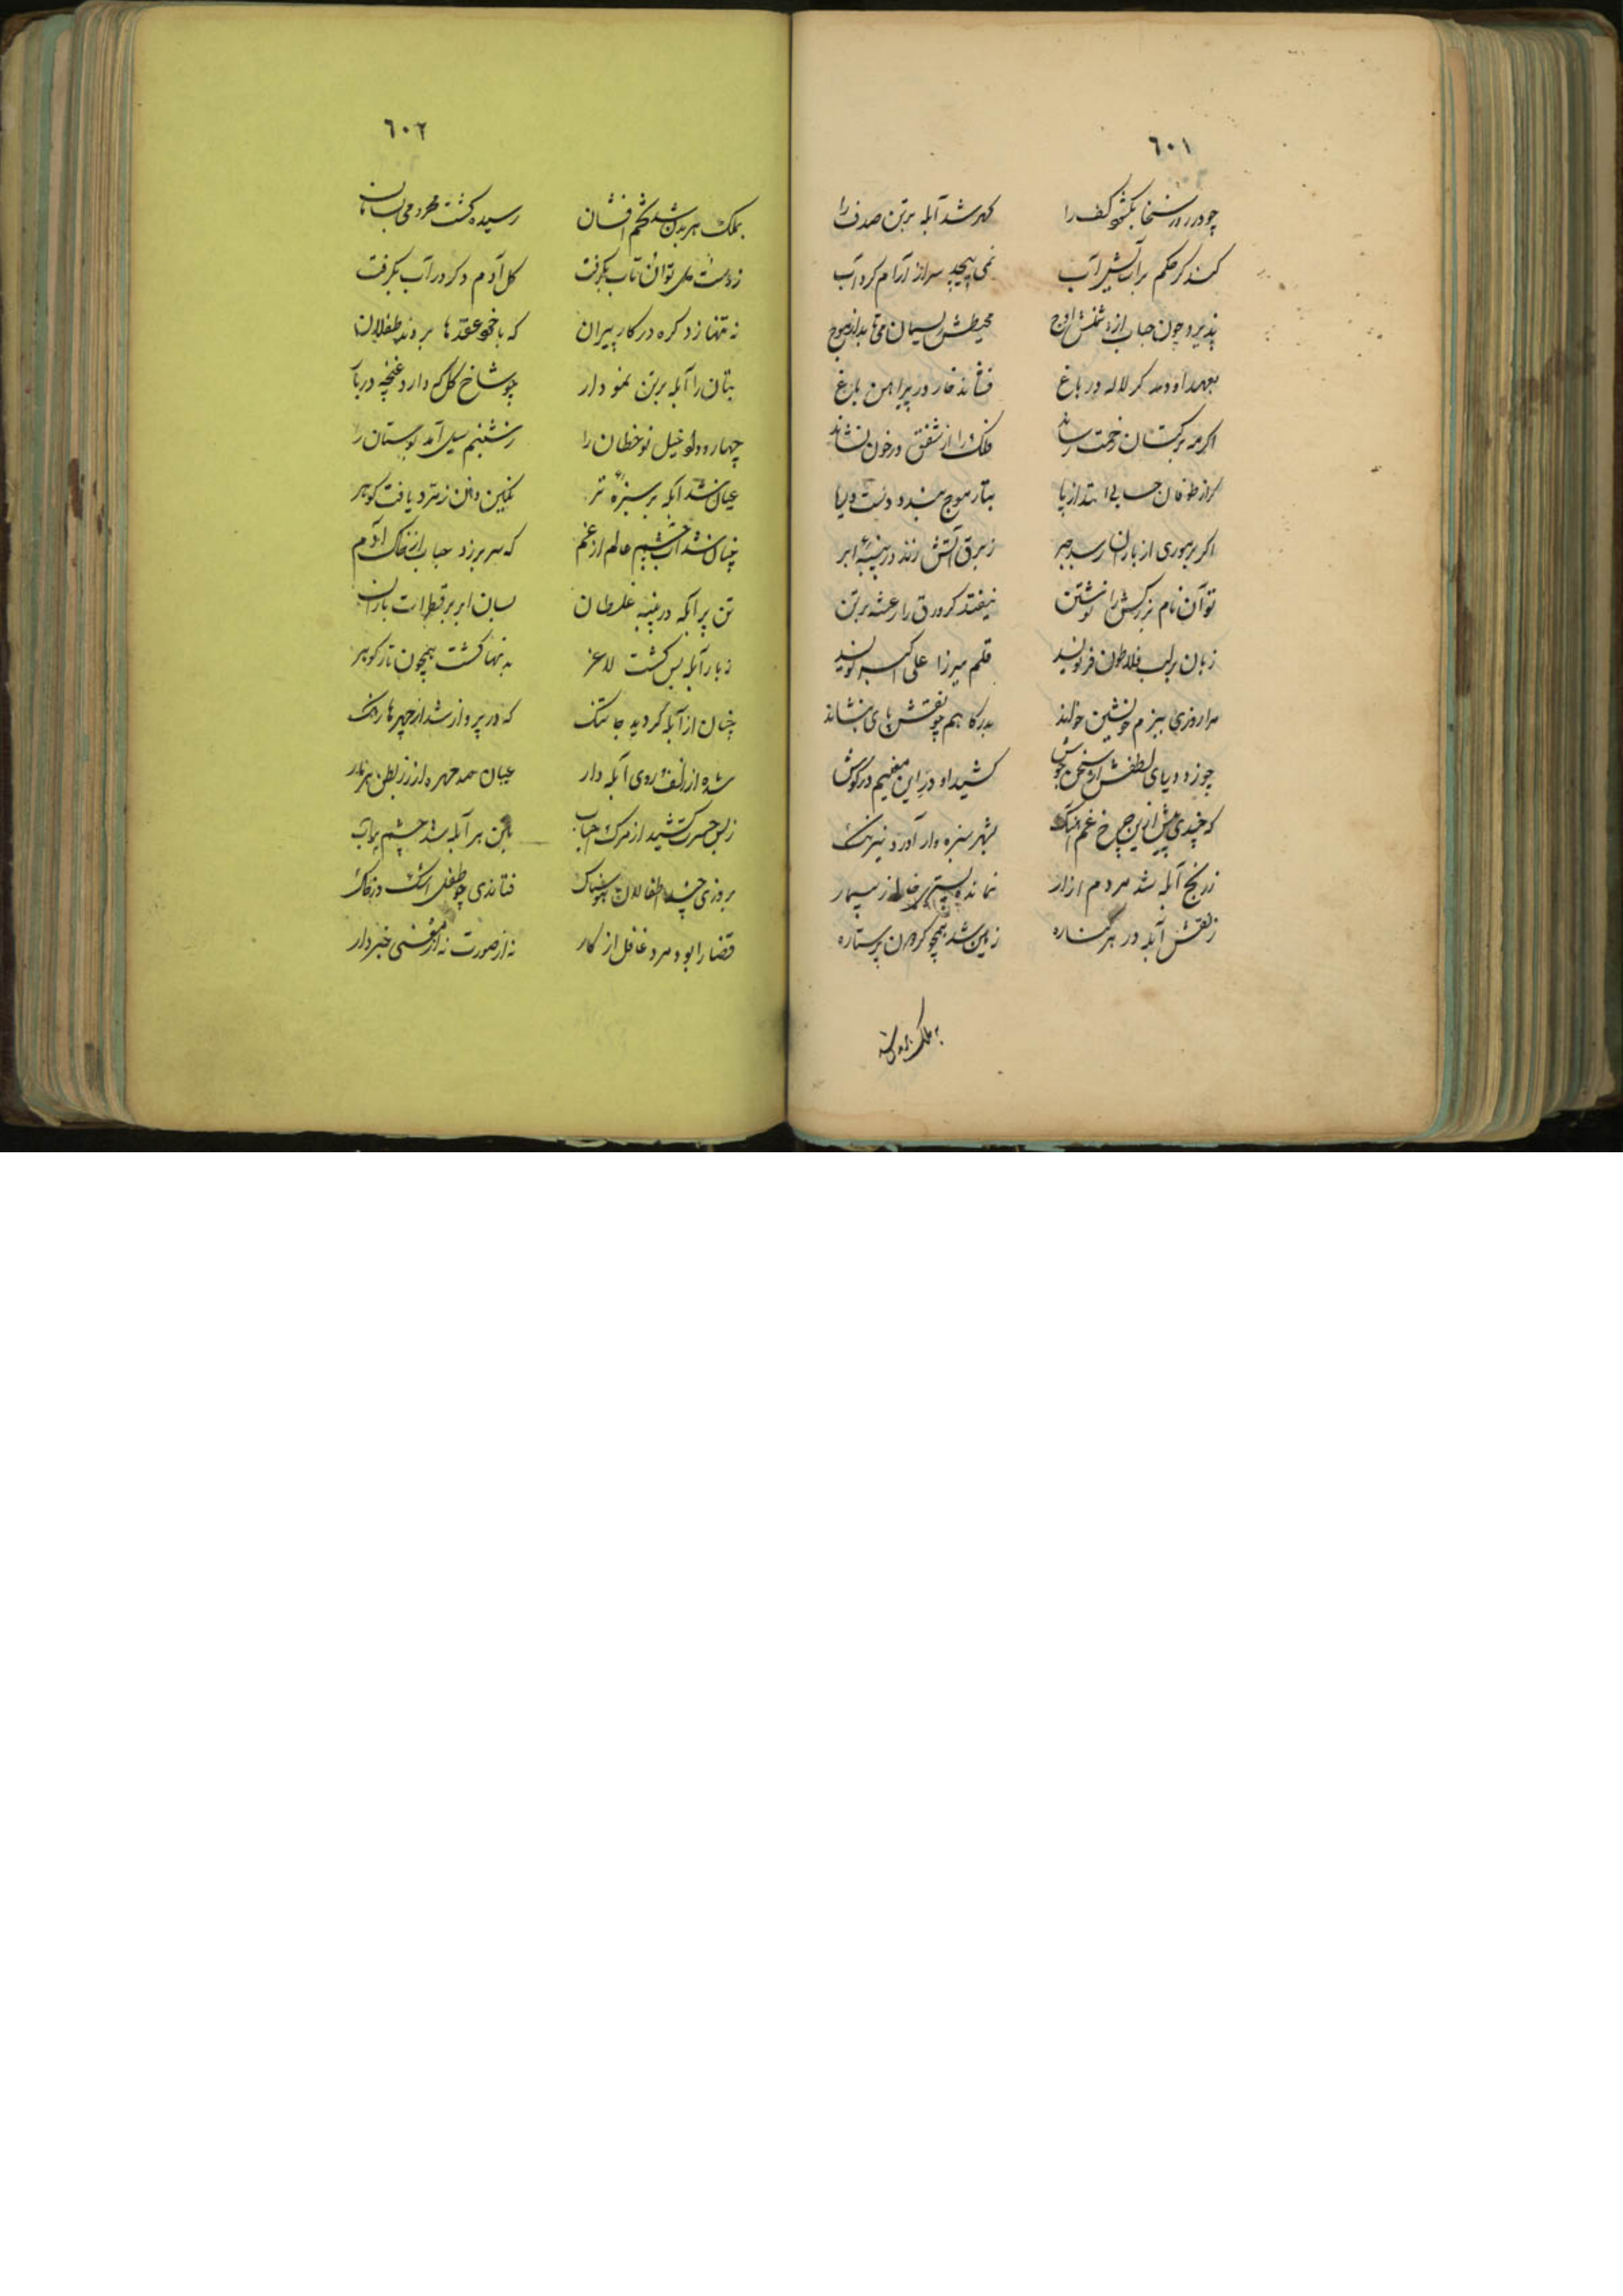 ٦٠١
چو در روز سخا بکشود کف را گهر شد آبله بر تن صدف را
کند گر حکم بر آتش آب نمی پیچد سر از آرام کرد آب
پذیرد چون حباب از اوج محیطش ریسمان می تابد از موج
بعهد او دمد گر لاله در باغ فشاند خار در پیراهن باغ
اگر مه بر کتان زحمت رساند فلک را از شفق در خون نشاند
گر از طوفان حبابی افتد از پا بتار موج بندد دست دریا
اگر بر موری از باران رسد جبر ز برق آتش زند در پنبهٔ ابر
توان نام بزرگش را نوشتن نیفتد گر ورق را رعشه بر تن
زبان بر لب فلاطون فر نوید قلم میرزا علی اکبر نوید
مرا روزی ببزم خویشتن خواند بدرگاهم چو نقش پای بنشاند
چو زد دریای لطفش از سخن جوش کشید او در این معنیم در گوش
که چندی پیش ازین چرخ غم آهنگ بشهر سبزه وار آورد نیرنگ
ز رنج آبله شد مردم آزار نمانده بستری خالی ز بیمار
ز نقش آبله در هر کناره زمین شد همچو گردون پر ستاره
بملک بدن شد
٦٠٢
بملک هر بدن شد تخم افشان رسیده کشت
ز دست توان تاب بگرفت گل آدم دگر در آب بگرفت
نه تنها زد گره در کار پیران که با خود عقدها بردند طفلان
بتان را آبله بر تن نمودار چو شاخ گل که دارد غنچه در بار
خیل نوخطان را ز شبنم سیل آمد بوستان را
عیان شد آبله بر سبزهٔ تر نگین دان زمرد یافت گوهر
چنان شد آب چشم عالم از غم که سر بر زد حباب از خاک آدم
تن پر آبله در پنبه غلطان بسان ابر پر قطرات باران
ز بار آبله بس گشت لاغر بدنها گشت همچون تار گوهر
چنان از آبله گردید جا تنگ که در پرواز شد از چهرها رنگ
شده از زلف روی آبله دار عیان
ز بس حسرت کشید از مرگ احباب بتن هر آبله شد چشم پر آب
بروزی چند اطفالان هوسناک فتاندی چو طفل اشک در خاک
قضا را بود مرد غافل از کار نه از صورت نه از معنی خبردار